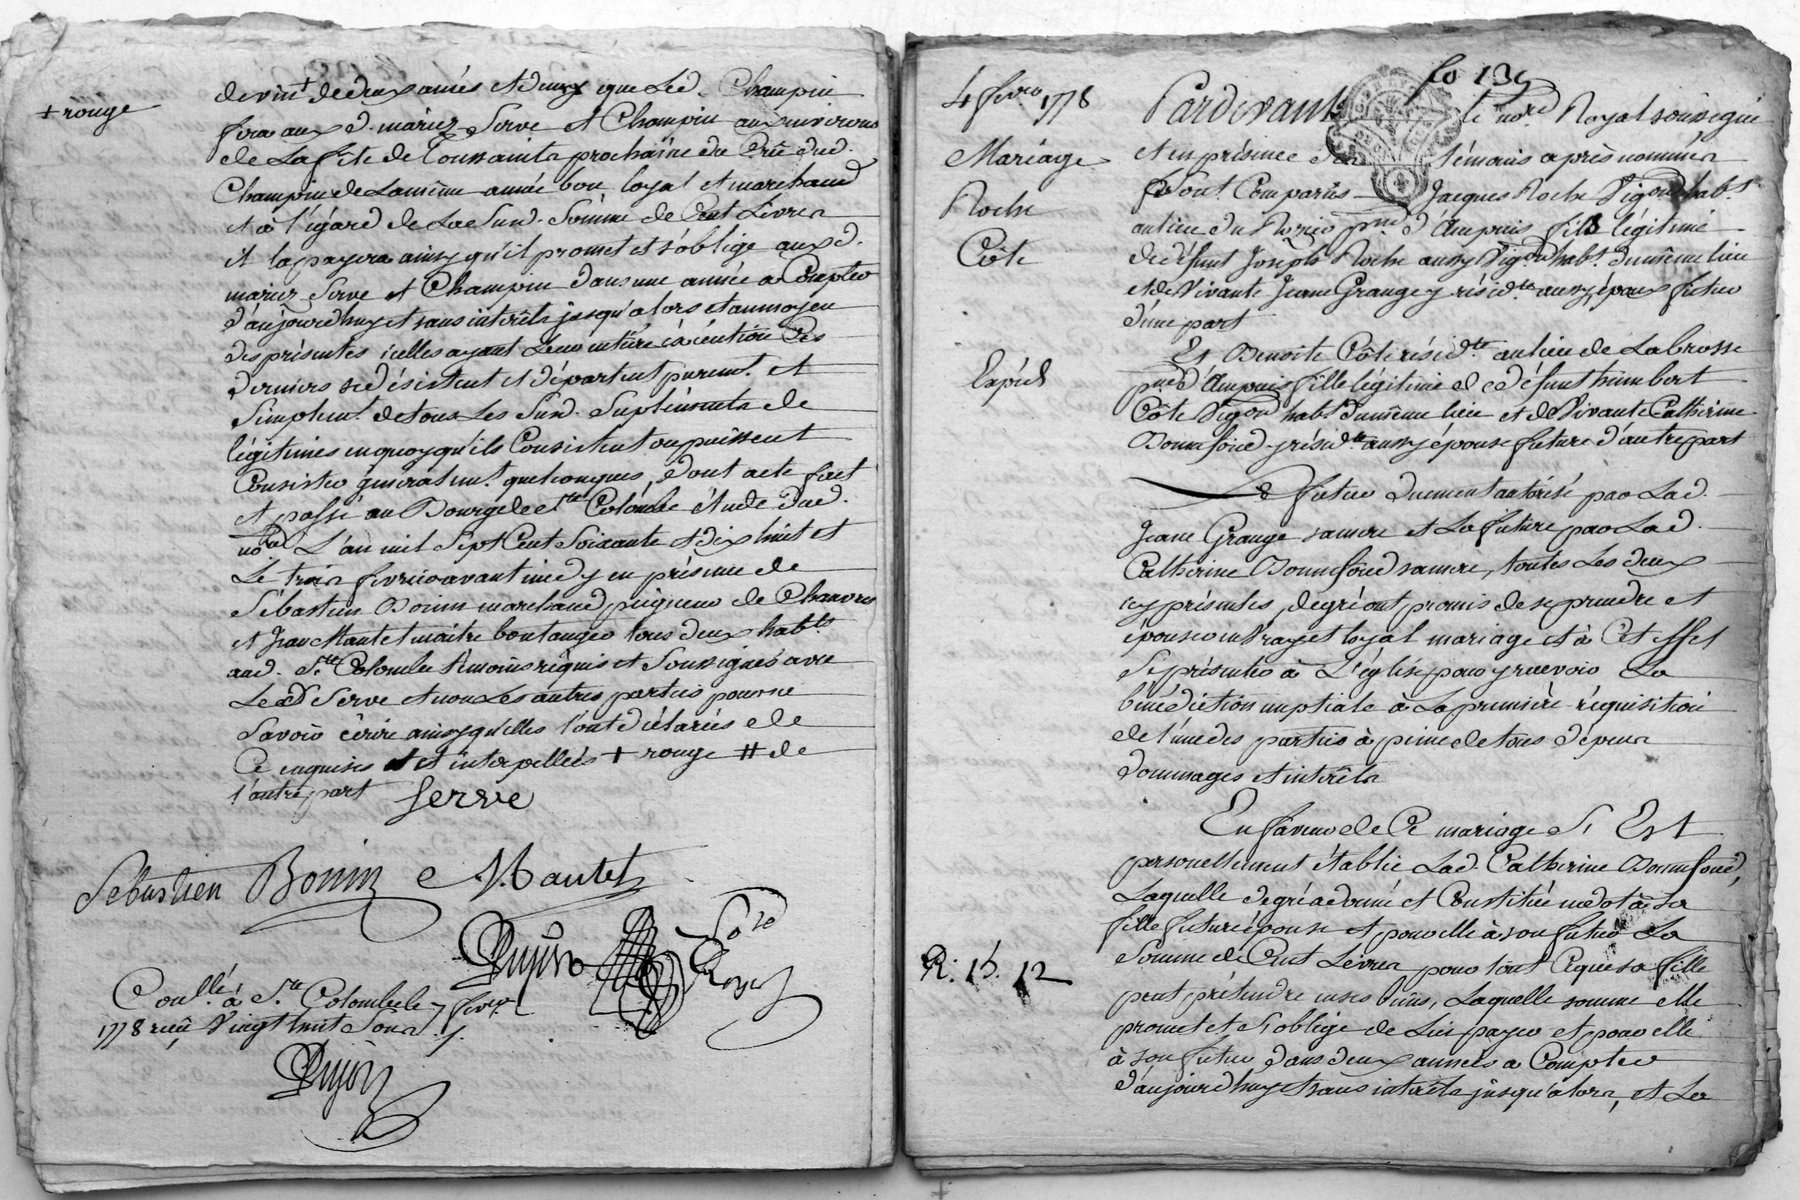 + rouge
de vin + de deux années et deux que led. Champin
fera aux d. mariez Serve et Champin aux environs
de La fête de Toussaints prochaine du Crû dud.
Champin de La même année bon, loyal et marchand
et à l'égard de Lad. Susd. Somme de Cent Livres
il la payera ainsy qu'il promet et s'oblige aux d.
mariez Serve et Champin dans une année a Compter
d'aujourd'huy et sans intérêts jusqu'alors et au moyen
des présentes icelles ayant Leur entière exécution Ces
derniers se désistent et départent purem.t et
Simplem.t de tous Les Susd. Supléments de
légitimes en quoy qu'ils Consistent ou puissent
Consister généralem.t quelconques, dont acte fait
et passé au Bourg de S.te Colombe étude dud.
no.re L'an mil Sept Cent Soixante et dix huit et
Le trois fevrier avant midy en présence de
Sébastien Bonin marchand peigneur de Chanvre
et Jean Mantet maitre boulanger tous deux hab.ts
aud. S.te Colombe témoins requis et Soussignés avec
Led. Serve et non Les autres parties pour ne
Savoir écrire ainsy qu'elles l'ont déclarées de
Ce enquises et interpellées + rouge # de
l'autre part Serve
Sebastien Bonin J. Mantet
Dujon no.re Royal
Conllé. à S.te Colombe le 7 fevr.
1778 reçu Vingt huit Sous
Dujon
fo 139
4 fevrier 1778
Mariage
Roche
Côte
Expéd
Pardevant le no.re Royal soussigné
et en présence des témoins après nommés
Sont Comparus Jacques Roche Vig.on hab.t
au lieu du Rozier p.sse d'Ampuis fils légitime
de défunt Joseph Roche aussy Vig.on hab.t du même lieu
et de Vivante Jeane Grange y résid.te aussy, époux futur
d'une part
Et Benoite Côte résid.te au lieu de Labrosse
p.sse d'Ampuis fille légitime de défunt humbert
Côte Vig.on hab.t du même lieu et de Vivante Catherine
Bonnefond y résid.te aussy épouse future d'autre part
Le futur duement autorisé par Lad.
Jeane Grange sa mere et La future par Lad.
Catherine Bonnefond sa mere, toutes Les deux
icy présentes, de gré ont promis de se prendre et
épouser en Vray et loyal mariage et à Cet effet
Se présenter à L'église pour y recevoir La
bénédiction nuptiale à La première réquisition
de l'une des parties à peine de tous dépens
dommages et intérêts
En faveur de Ce mariage S'Est
personnellement établie Lad. Catherine Bonnefond,
Laquelle de gré a donné et Constitué en dot à Sa
fille future épouse et pour elle à son futur La
Somme de Cent Livres pour tout Ce que sa fille
peut prétendre en ses biens, Laquelle somme elle
promet et S'oblige de Lui payer et pour elle
à son futur dans deux années a Compter
d'aujourd'huy et sans intérêts jusqu'alors, et La
R. 15. 12